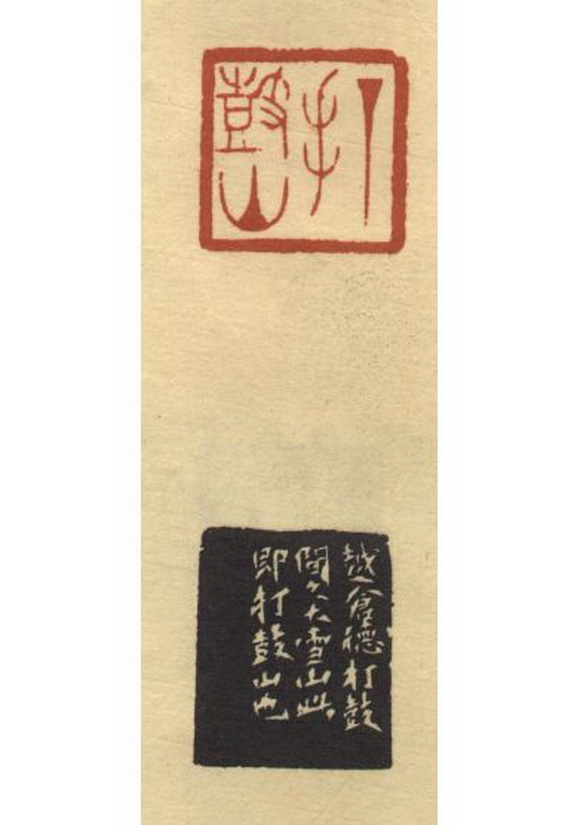 打
鼓山
越打鼓
大雪山此
即打鼓山也